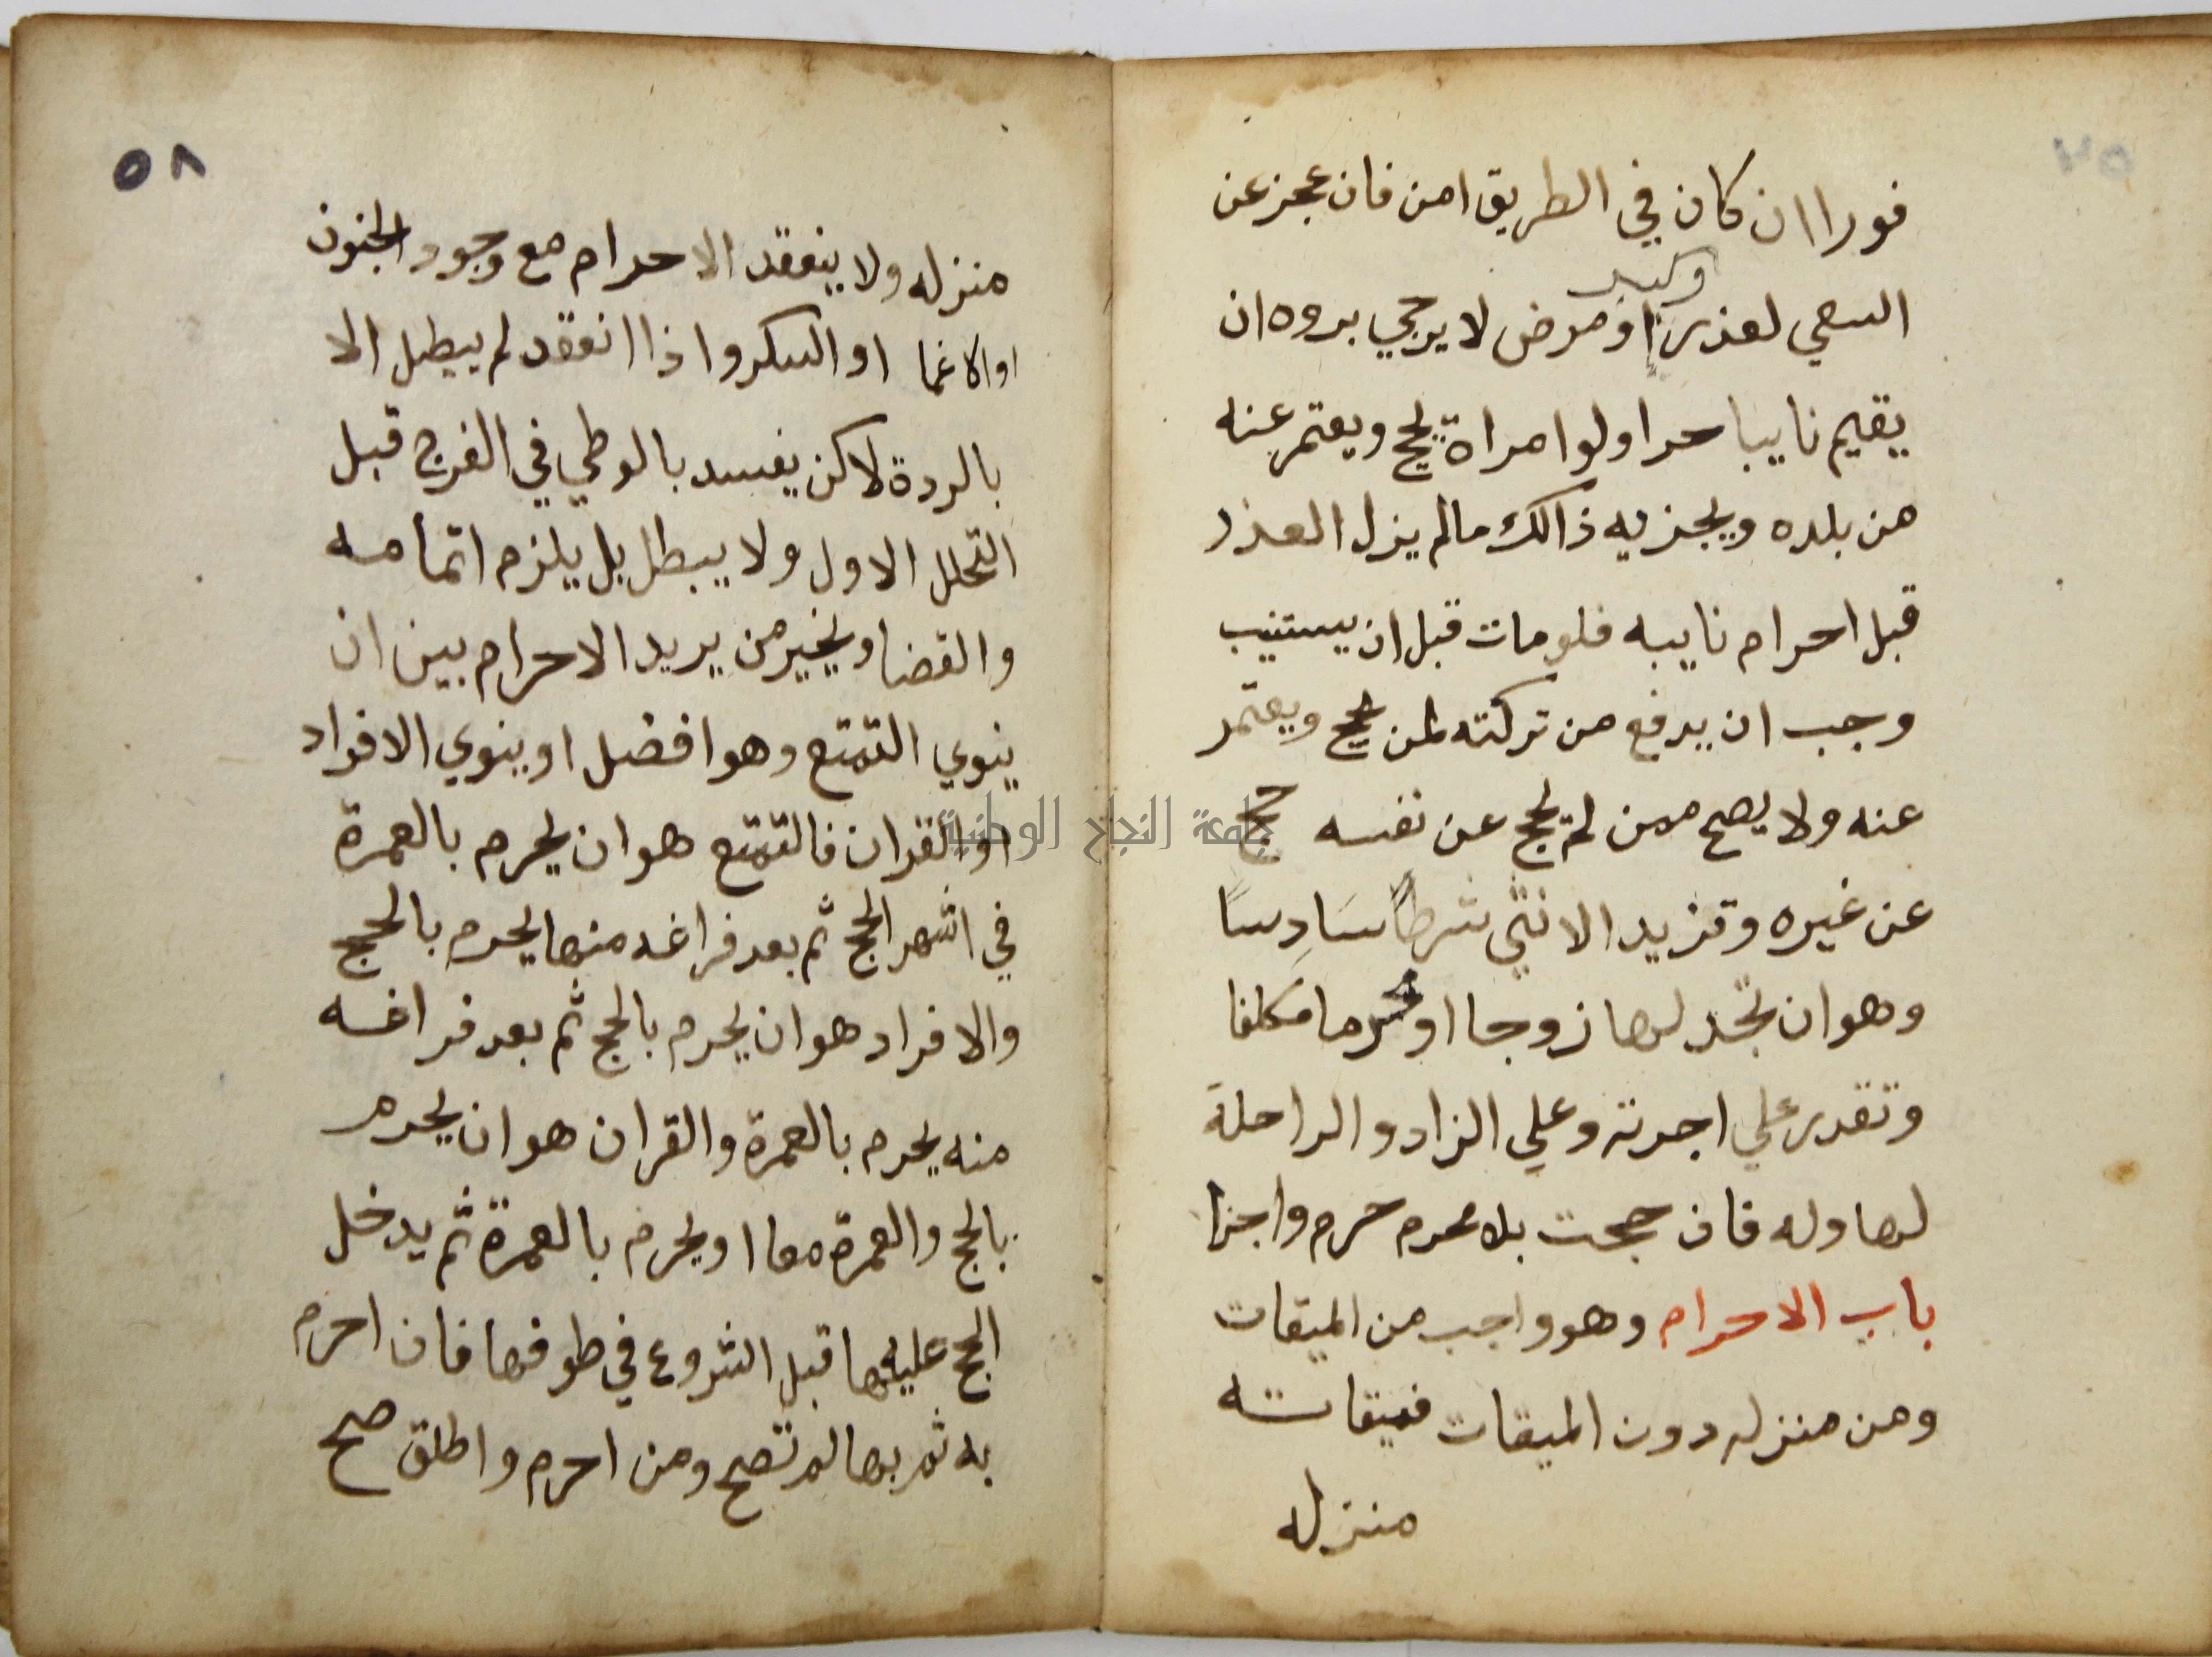 فورا ان كان في الطريق امن فان عجز عن
السعي لعذر كبر او مرض لا يرجي بروه ان
يقيم نايبا حرا ولو امراة يحج ويعتمر عنه
من بلده ويجزيه ذالك مالم يزل العذر
قبل احرام نايبه فلو مات قبل ان يستنيب
وجب ان يدفع من تركته لمن يحج ويعتمر
عنه ولا يصح ممن لم يحج عن نفسه حج
عن غيره وتزيد الانثي شرطاً سَادِسًا
وهو ان تجد لها زوجا او محرما مكلفا
وتقدر علي اجرته وعلي الزاد والراحلة
لها وله فان حجت بلا محرم حرم واجزا
باب الاحرام وهو واجب من الميقات
ومن منزله دون الميقات فميقاته
منزله
٥٨
منزله ولا ينعقد الاحرام مع وجود الجنون
او الاغما او السكر واذا انعقد لم يبطل الا
بالردة لاكن يفسد بالوطي في الفرج قبل
التحلل الاول ولا يبطل بل يلزم اتمامه
والقضا ويخير من يريد الاحرام بين ان
ينوي التمتع وهو افضل او ينوي الافراد
او القران فالتمتع هو ان يحرم بالعمرة
في اشهر الحج ثم بعد فراغه منها يحرم بالحج
والافراد هو ان يحرم بالحج ثم بعد فراغه
منه يحرم بالعمرة والقران هو ان يحرم
بالحج والعمرة معا او يحرم بالعمرة ثم يدخل
الحج عليها قبل الشروع في طوفها فان احرم
به ثم بها لم تصح ومن احرم واطلق صح
جامعة النجاح الوطنية